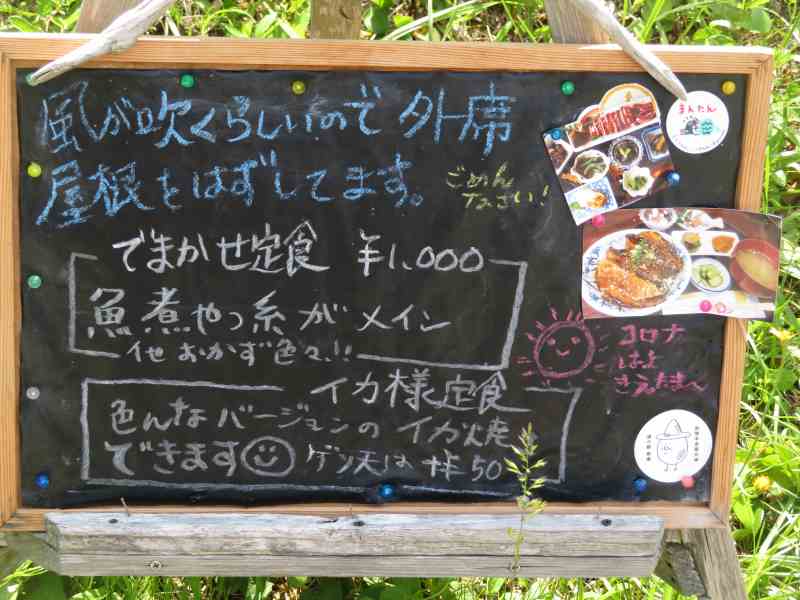 風が吹くらしいので 外席
屋根をはずしてます。
ごめん
なさい!
でまかせ定食 ¥1,000
魚煮やっ系が メイン
他 おかず色々!!
イカ様定食
色んなバージョンの イカ焼
できます ゲソ天は +¥50
コロナ
はよ
きえたまへ
まんたん